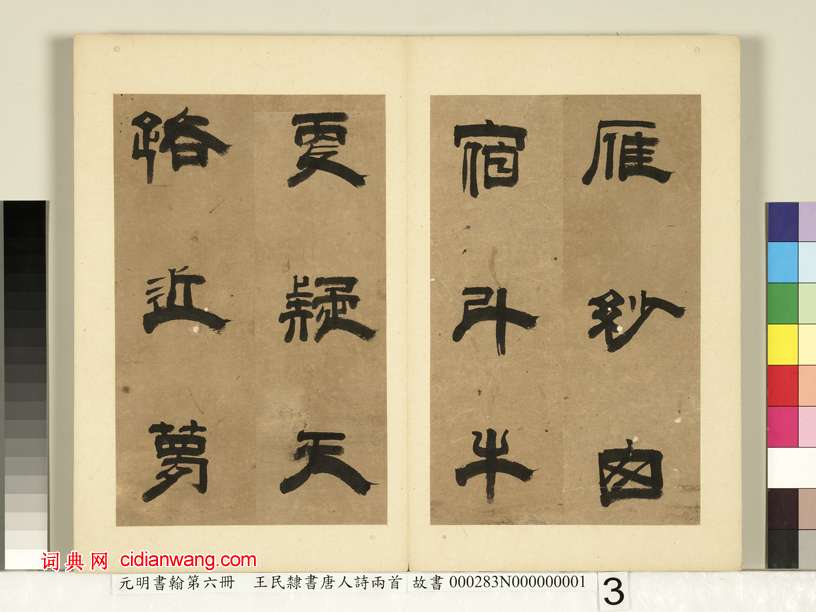 雁紗囱
宿斗牛
更疑天
路近夢
词典网 cidianwang.com
元明書翰第六冊 王民隸書唐人詩兩首 故書 000283N000000001
3